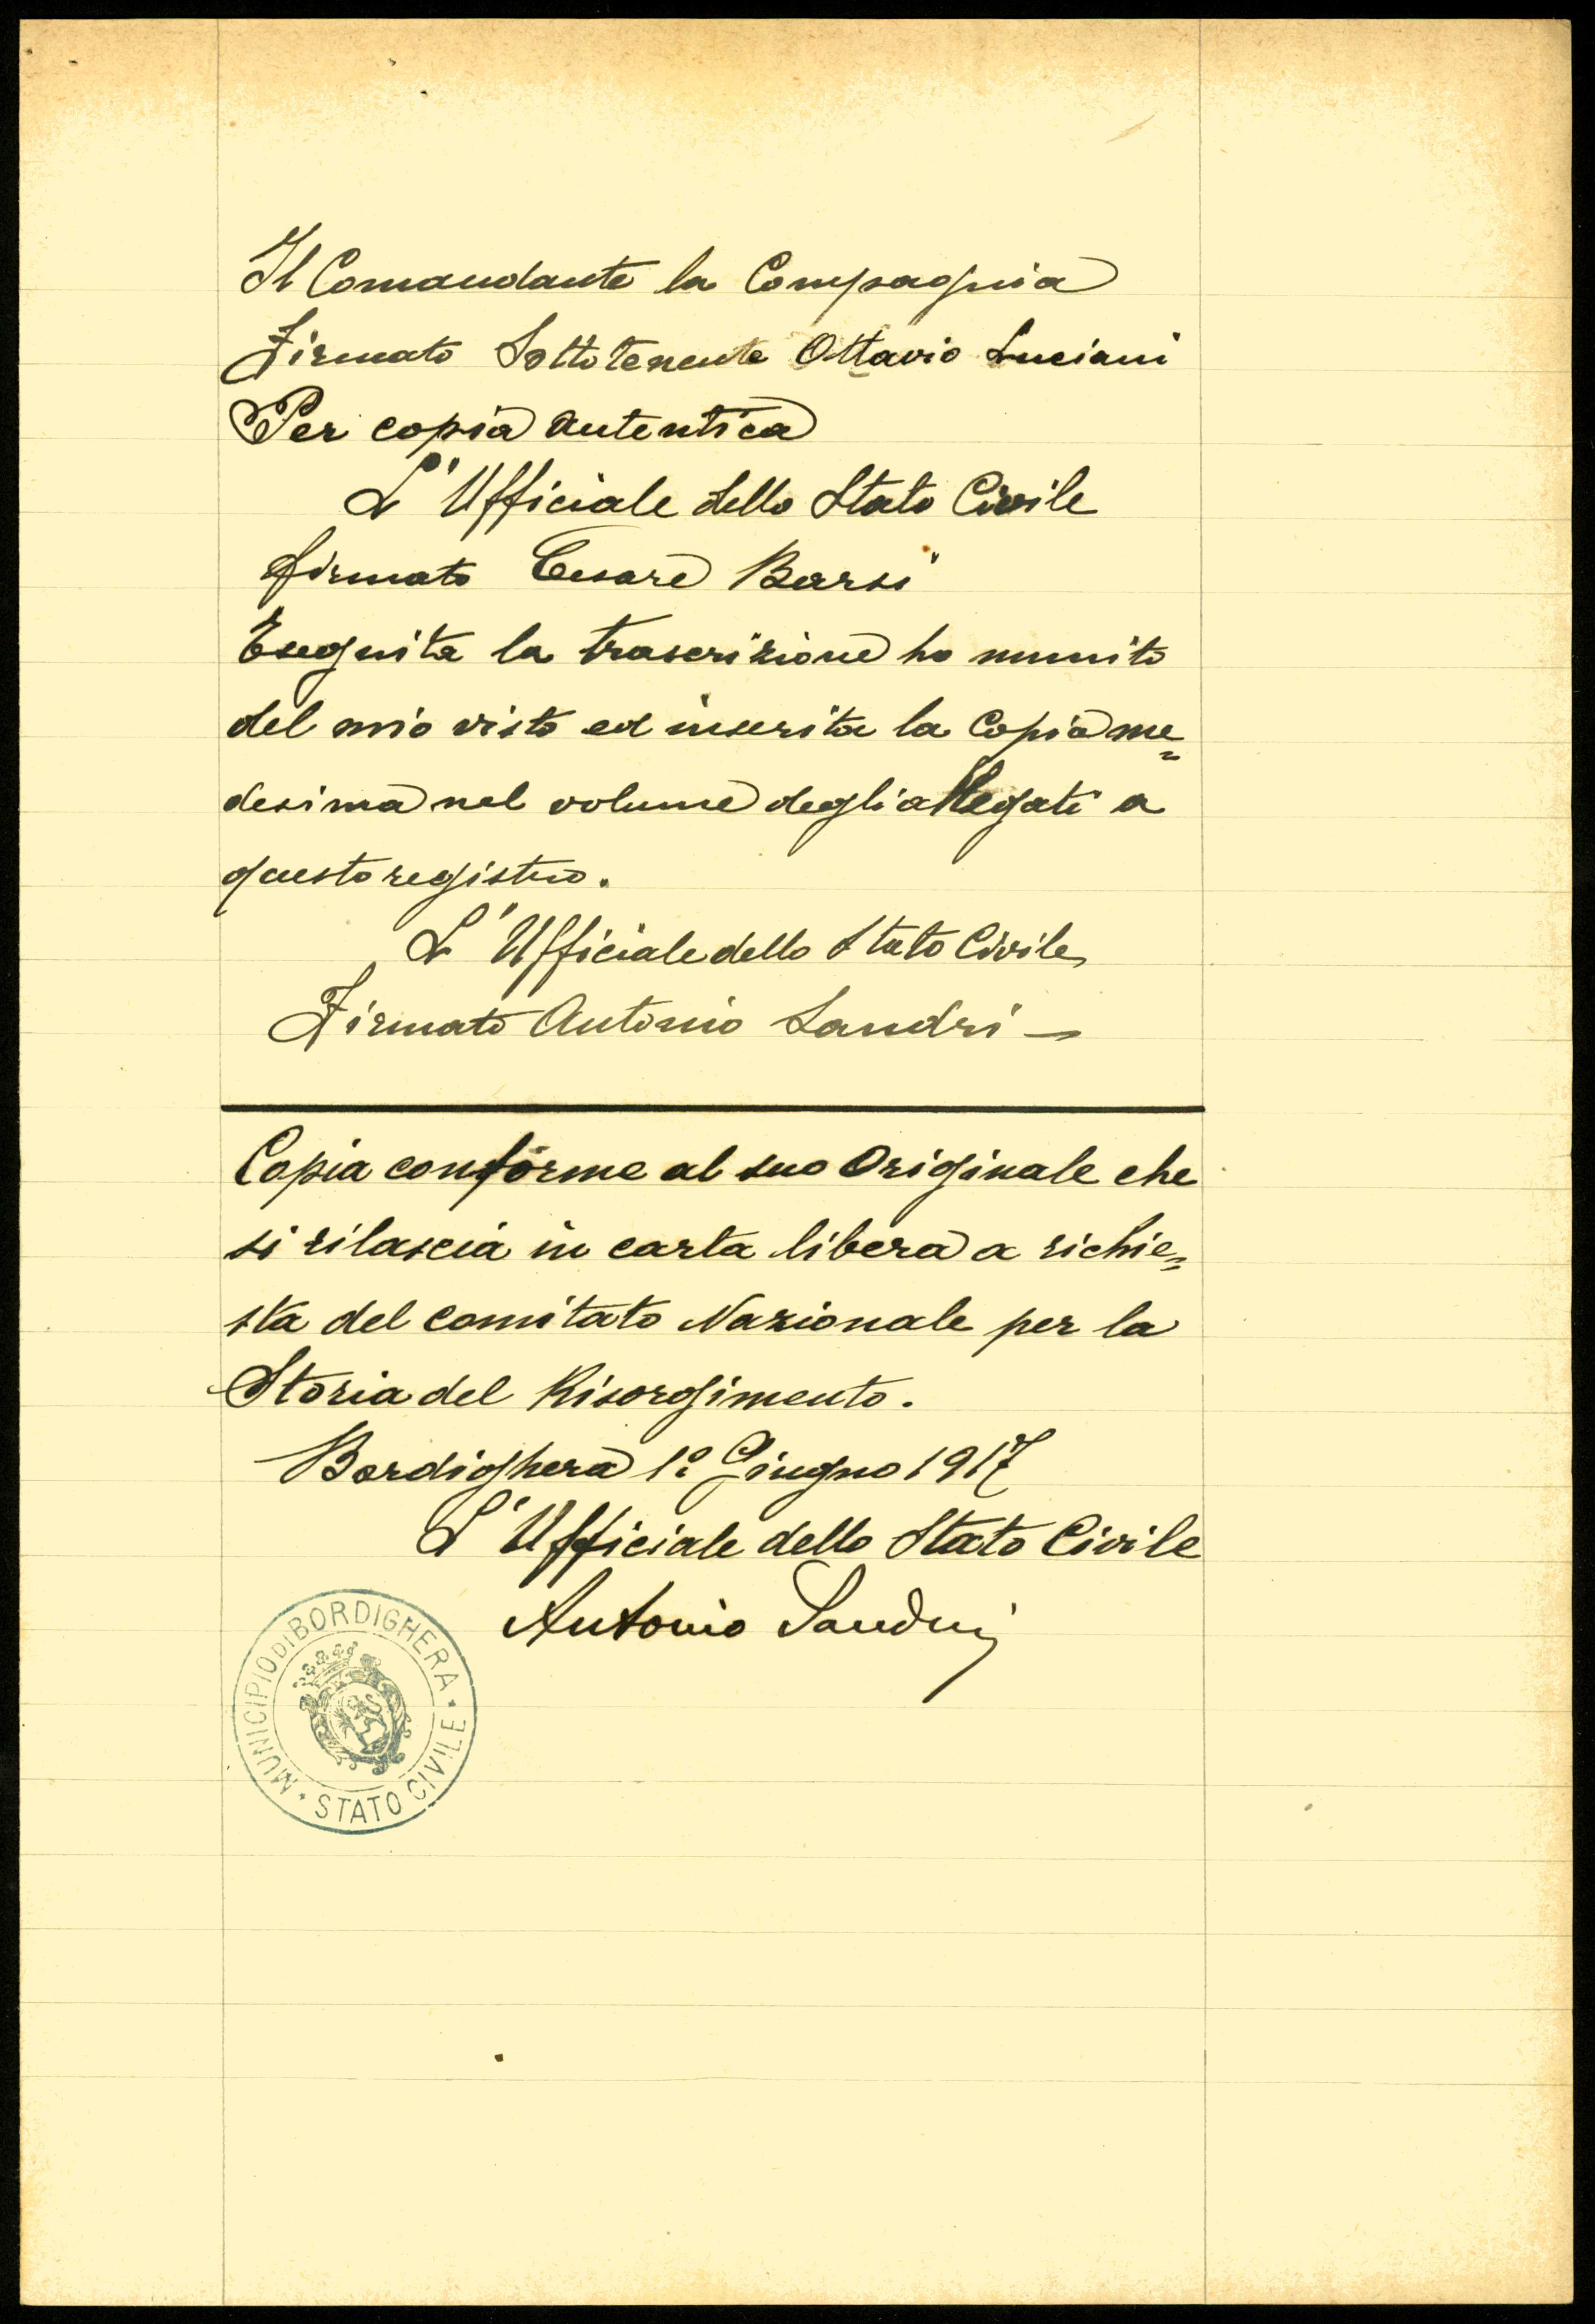 Il Comandante la Compagnia
Firmato Sottotenente Ottavio Luciani
Per copia autentica
L'Ufficiale dello Stato Civile
firmato Cesare Barsi
Eseguita la trascrizione ho munito
del mio visto ed inserita la Copia me=
desima nel volume degli allegati a
questo registro.
L'Ufficiale dello Stato Civile
Firmato Antonio Landri –
Copia conforme al suo Originale che
si rilascia in carta libera a richie=
sta del comitato Nazionale per la
Storia del Risorgimento.
Bordighera 1º Giugno 1917
L'Ufficiale dello Stato Civile
Antonio Landri
MUNICIPIO DI BORDIGHERA
STATO CIVILE